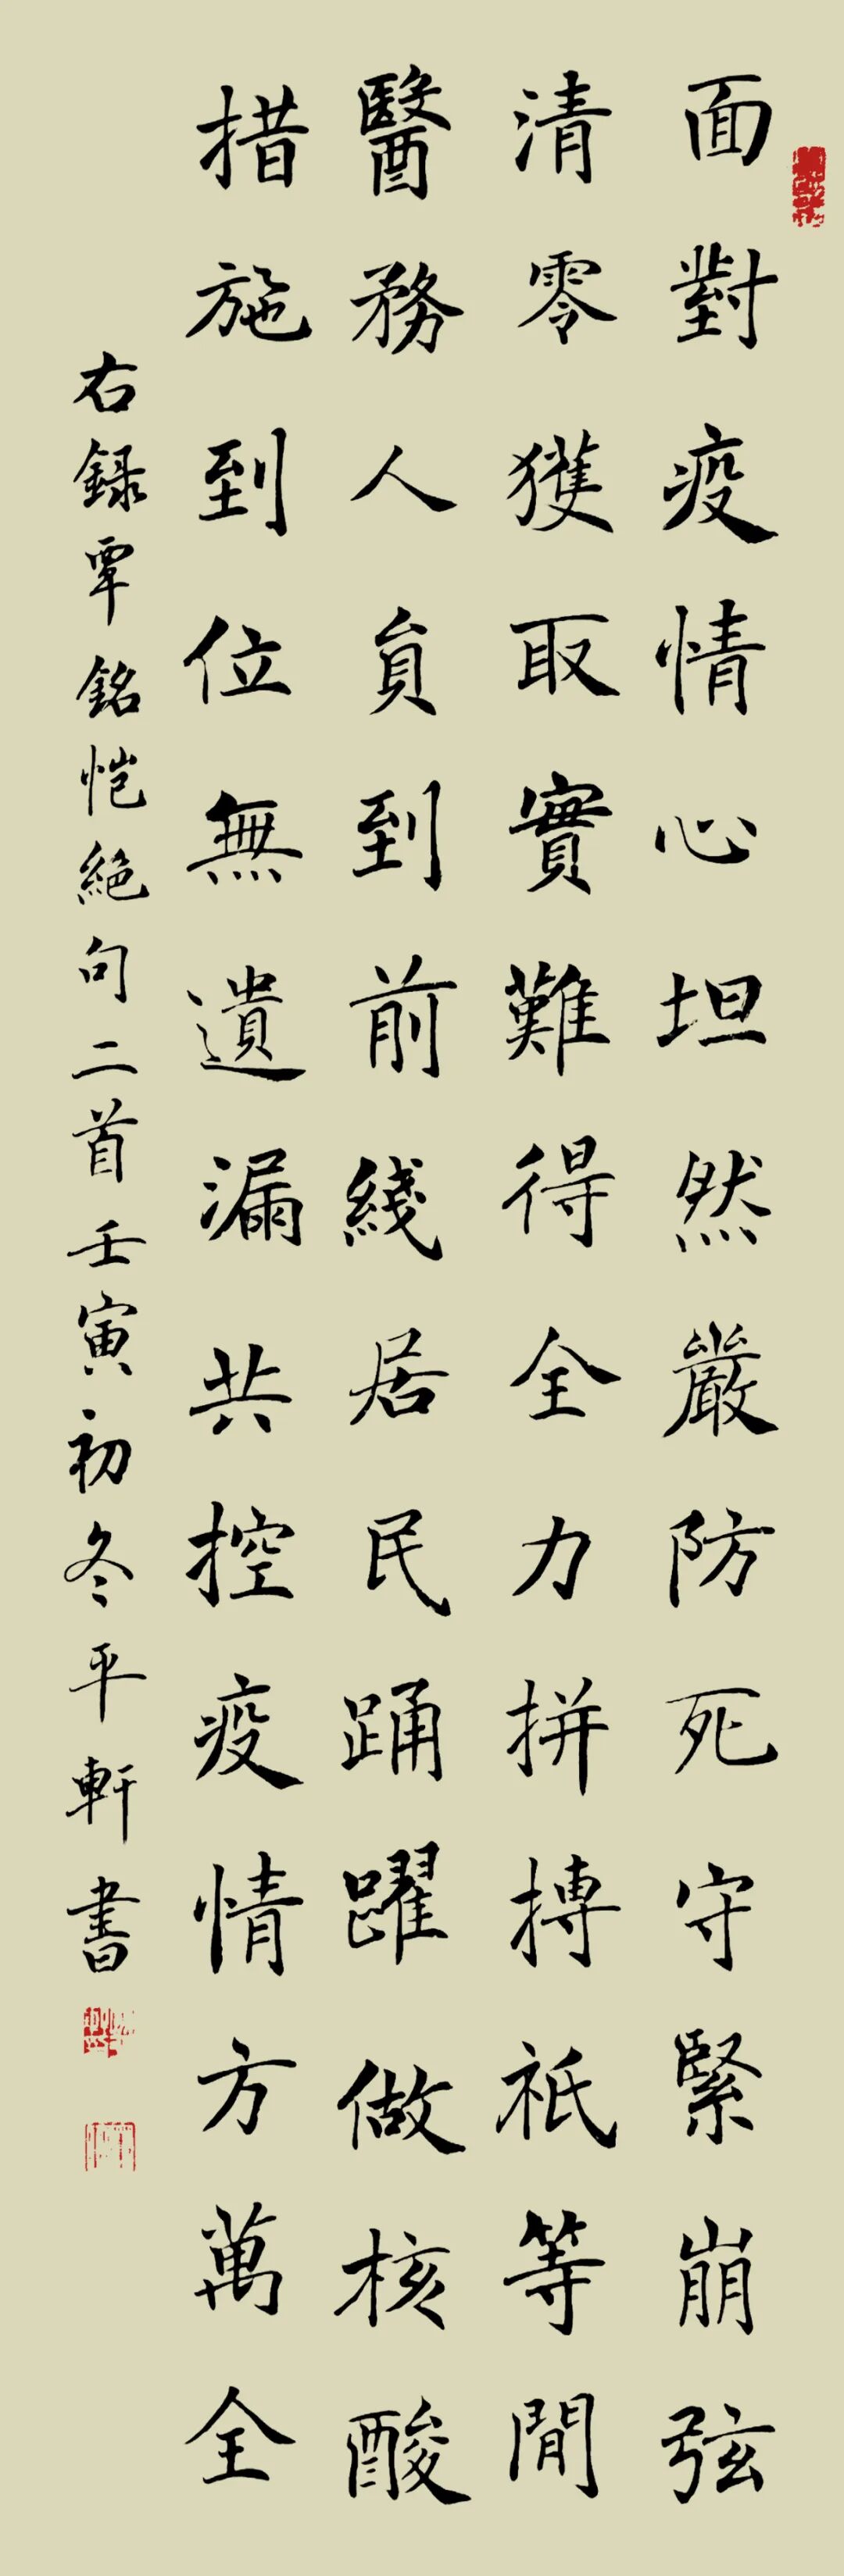 面對疫情心坦然嚴防死守緊崩弦
清零獲取實難得全力拼搏祇等閒
醫務人員到前綫居民踊躍做核酸
措施到位無遺漏共控疫情方萬全
右録覃銘愷絕句二首壬寅初冬平軒書